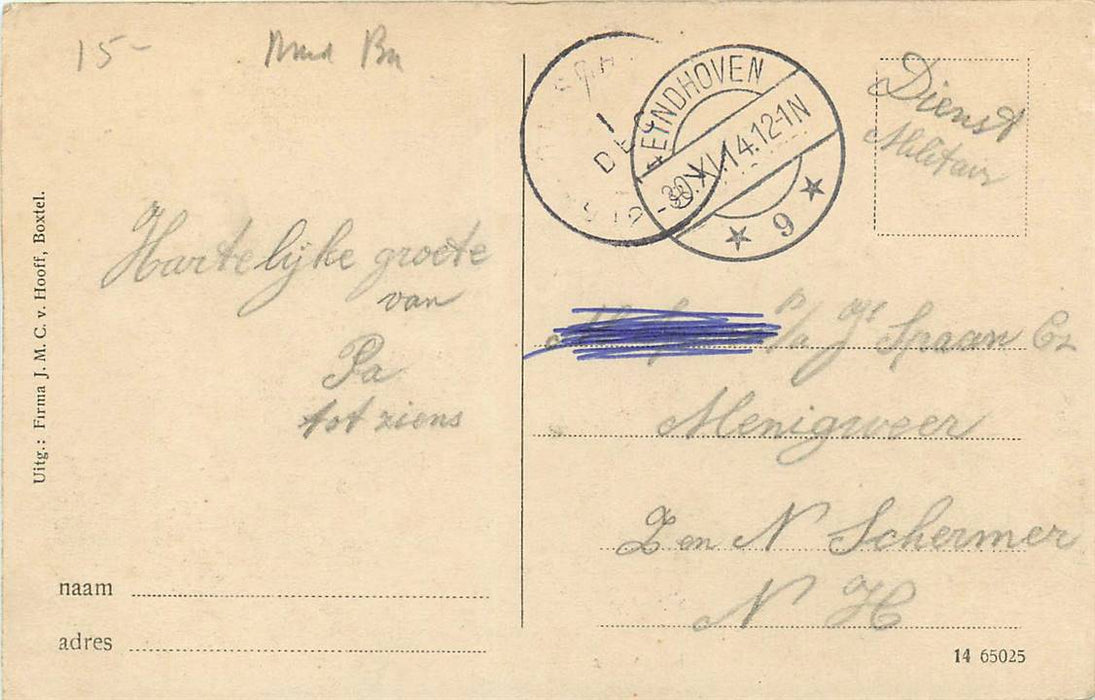 15-
Uitg.: Firma J. M. C. v. Hooff, Boxtel.
Hartelijke groete
van
Pa
tot ziens
naam
adres
EYNDHOVEN
30.XI.14.12-1N
9
1
DEC
Dienst
Militair
P/a Jb Spaan Cz
Menigweer
Z en N Schermer
N H
14 65025